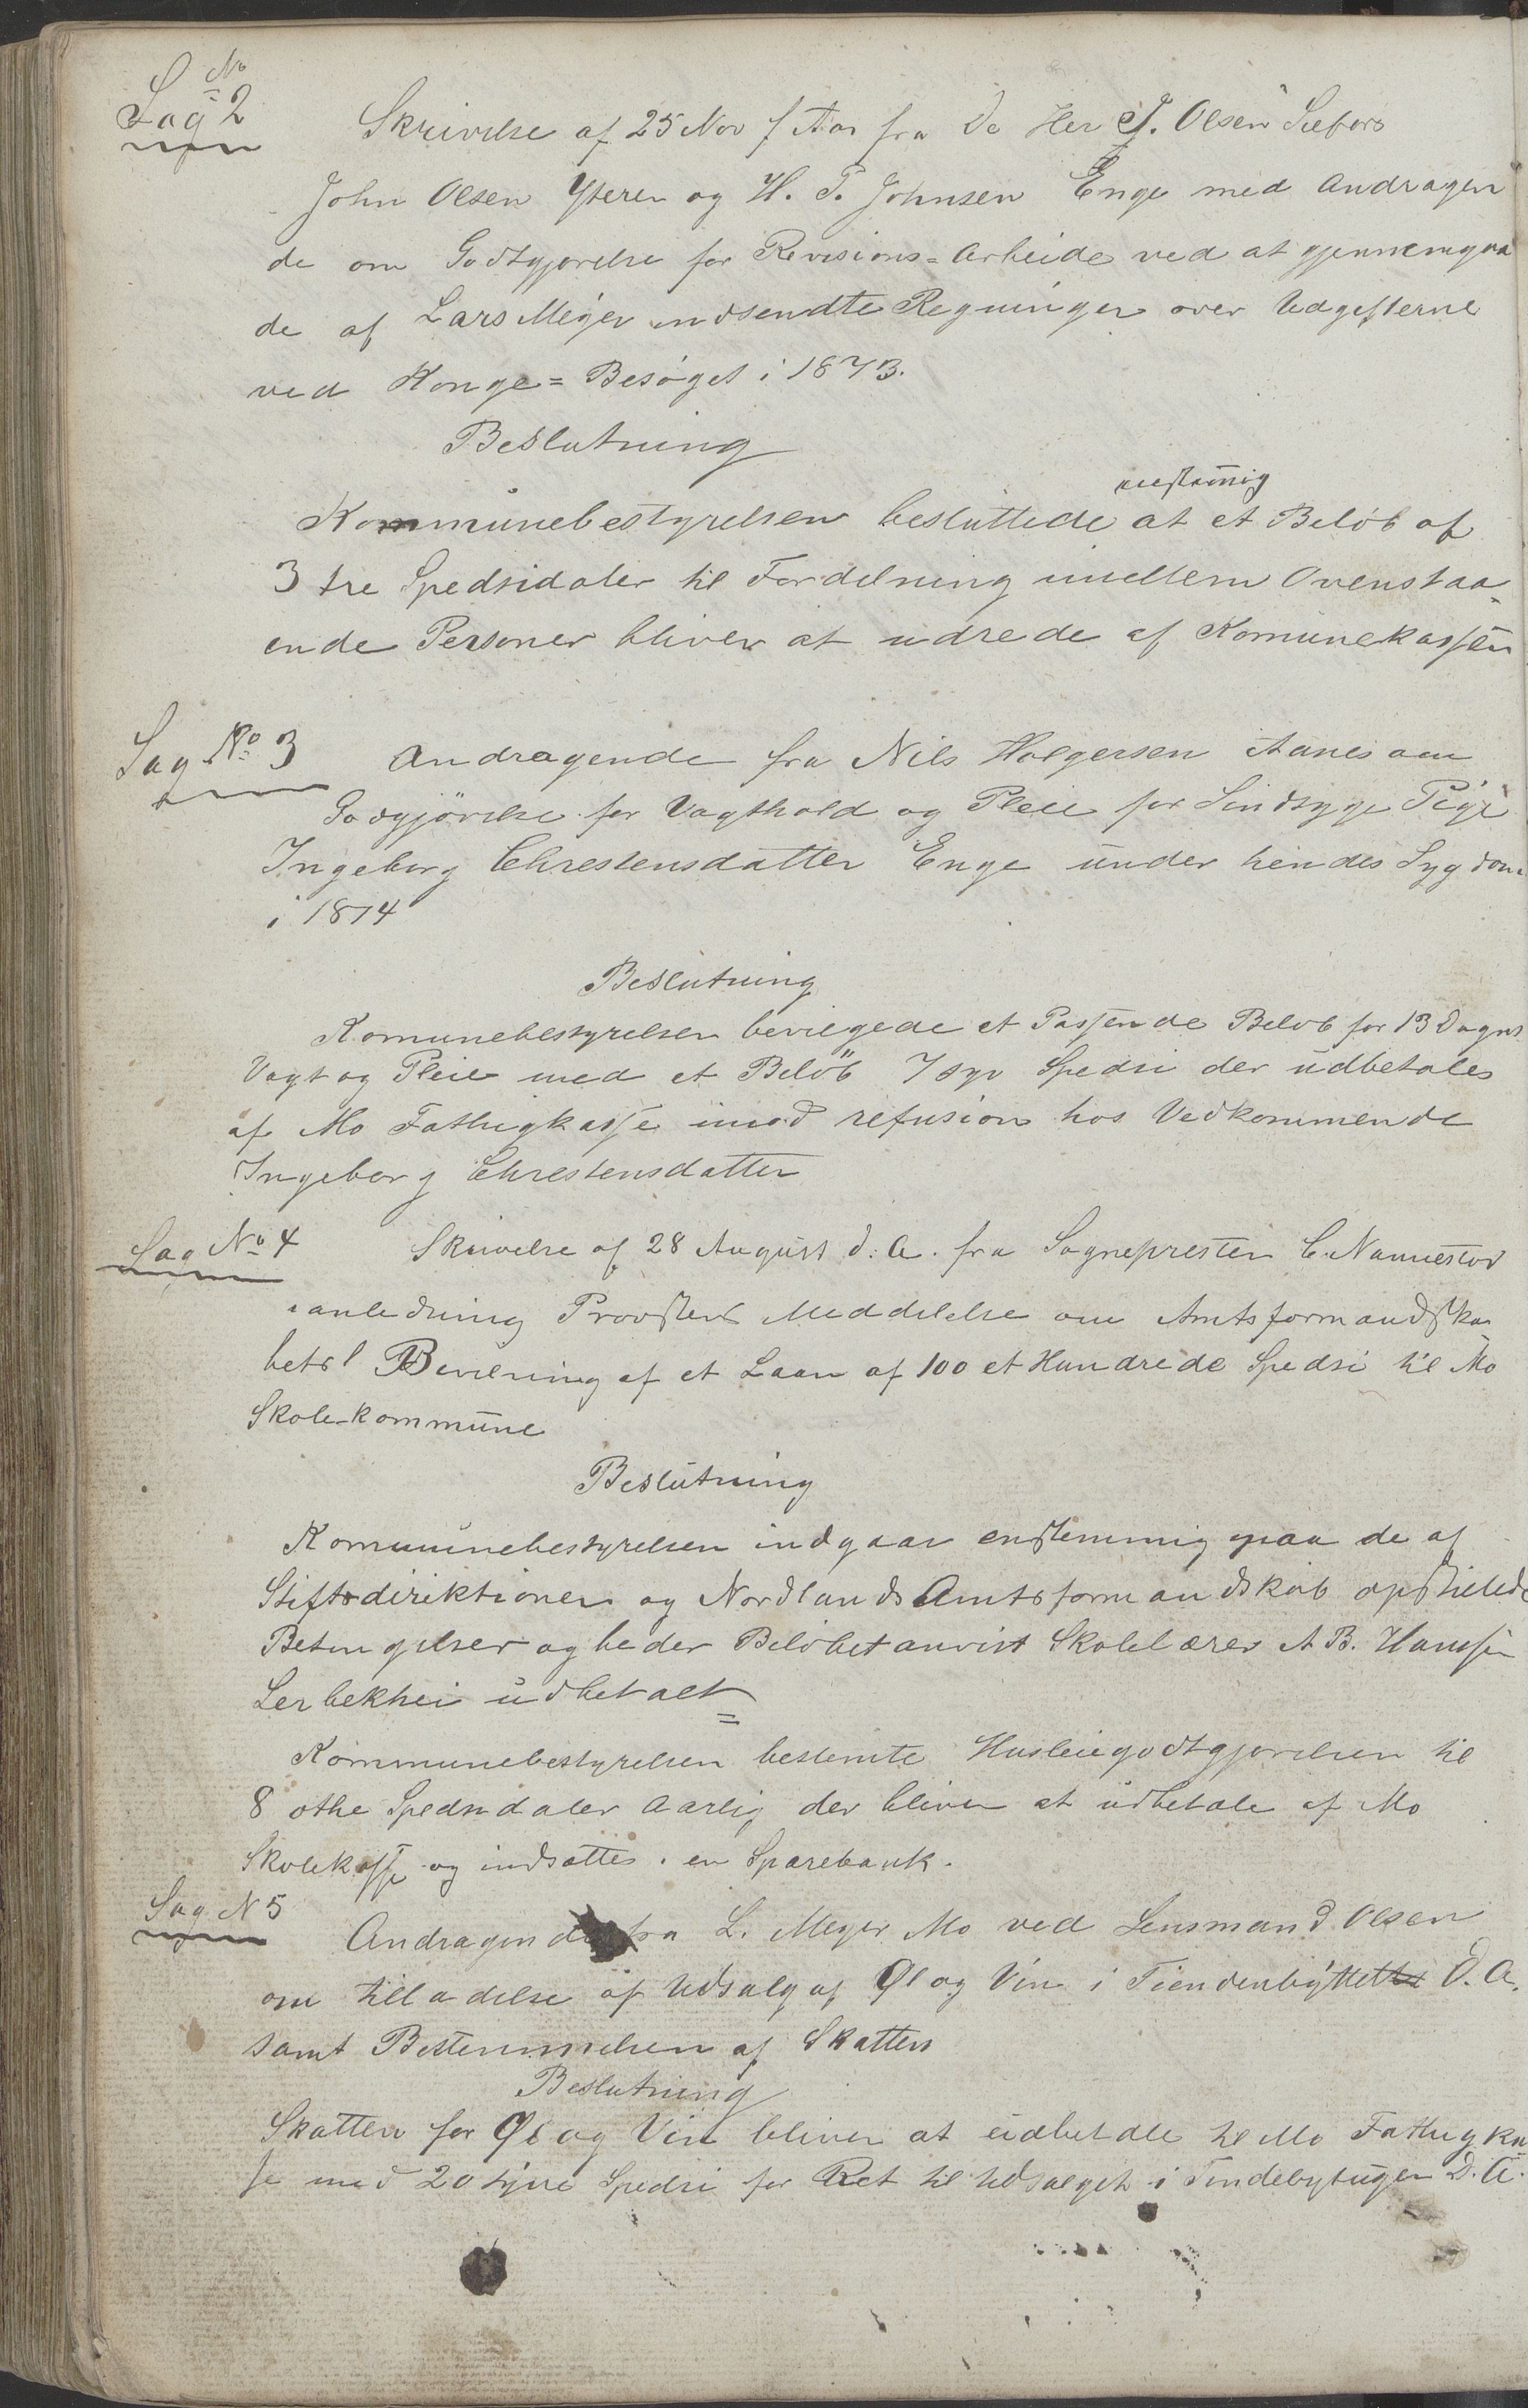 Sag No 2
Skrivelse af 25 Nov f Aar fra De Her J. Olsen
John Olsen Yteren og H. P. Johnsen Enge med Andragen
de om Godtgjørelse for Revisions=Arbeide ved at gjennemgaa
de af Lars Meyer indsendte Regninger over Udgifterne
ved Konge=Besøget i 1873.
Beslutning
enstemig
Kommunebestyrelsen besluttede at et Beløb af
3 tre Spedsidaler til Fordelning imellem Ovenstaa=
ende Personer bliver at udrede af Komunekassen
Sag No 3
Andragende fra Nils Holgersen Aanes om
Godgjörelse for Vagthold og Pleie for Sindsyge Pige
Ingeborg Chrestensdatter Enge under hendes Sygdom
i 1874
Beslutning
Komunebestyrelsen bevilgede et Passende Beløb for 13 Dagns
Vagt og Pleie med et Beløb 7 syv Spedsi der udbetales
af Mo Fathigkasse imod refusion hos Vedkommende
Ingeborg Chrestensdatter
Sag No 4
Skrivelse af 28 August d: A. fra Sognepresten C. Nannestad
i anledning Provstens Meddelelse om Amtsformandska
bets Bevilning af et Laan af 100 et Hundrede Spedsi til Mo
Skole-kommune
Beslutning
Kommunebestyrelsen indgaar enstemmig paa de af
Stiftsdirektionen og Nordlands Amtsformandskab opstillede
Betingelser og beder Beløbet anvist Skolelærer A B. Hansen
Lerbekhei udbetalt
Kommunebestyrelsen bestemte Husleiegodtgjørelsen til
8 othe Spedsidaler Aarlig der bliver at udbetale af Mo
Skolekasse og indsattes i en Sparebank.
Sag N 5
Andragende fra L. Meyer Mo ved Lensmand Olsen
om tilladelse af Udsalg af Øl og Vin i Tiendenbyttet D. A.
samt Bestemmelsen af Skatten
Beslutning
Skatten for Øl og Vin bliver at udbetale til Mo Fathigka
se med 20 tyve Spedsi for Ret til Udsalget i Tindebytingen D. A.